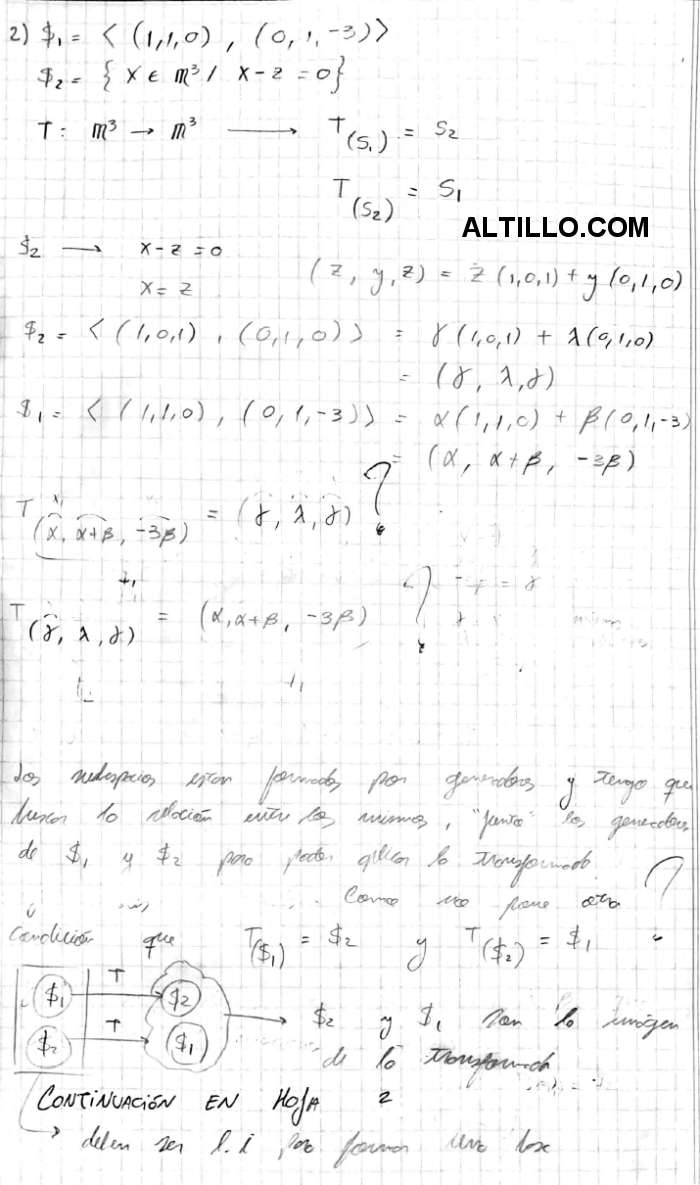 2) $₁ = < (1,1,0) , (0,1,-3)>
$₂ = { X ∈ m³ / X-z = 0}
T: m³ → m³ → T(S₁) = S₂
T(S₂) = S₁
ALTILLO.COM
$₂ → x-z=0
x=z
(z, y, z) = z(1,0,1) + y(0,1,0)
$₂ = < (1,0,1) , (0,1,0) > = γ(1,0,1) + λ(0,1,0)
= (γ, λ, γ)
$₁ = < (1,1,0) , (0,1,-3)> = α(1,1,0) + β(0,1,-3)
= (α, α+β, -3β)
T(α, α+β, -3β) = (γ, λ, γ) ?
T(γ, λ, γ) = (α, α+β, -3β) ?
Los subespacios estan formados por generadores y tengo que
buscar la relación entre los mismos, "junto" los generadores
de $₁ y $₂ para poder aplicar la transformada.
Como no pone otra
condición que T($₁) = $₂ y T($₂) = $₁
$₁ T $₂
$₂ T $₁
$₂ y $₁ son la imágen
de la transformada
CONTINUACIÓN EN HOJA 2
deben ser l.i para formar una base